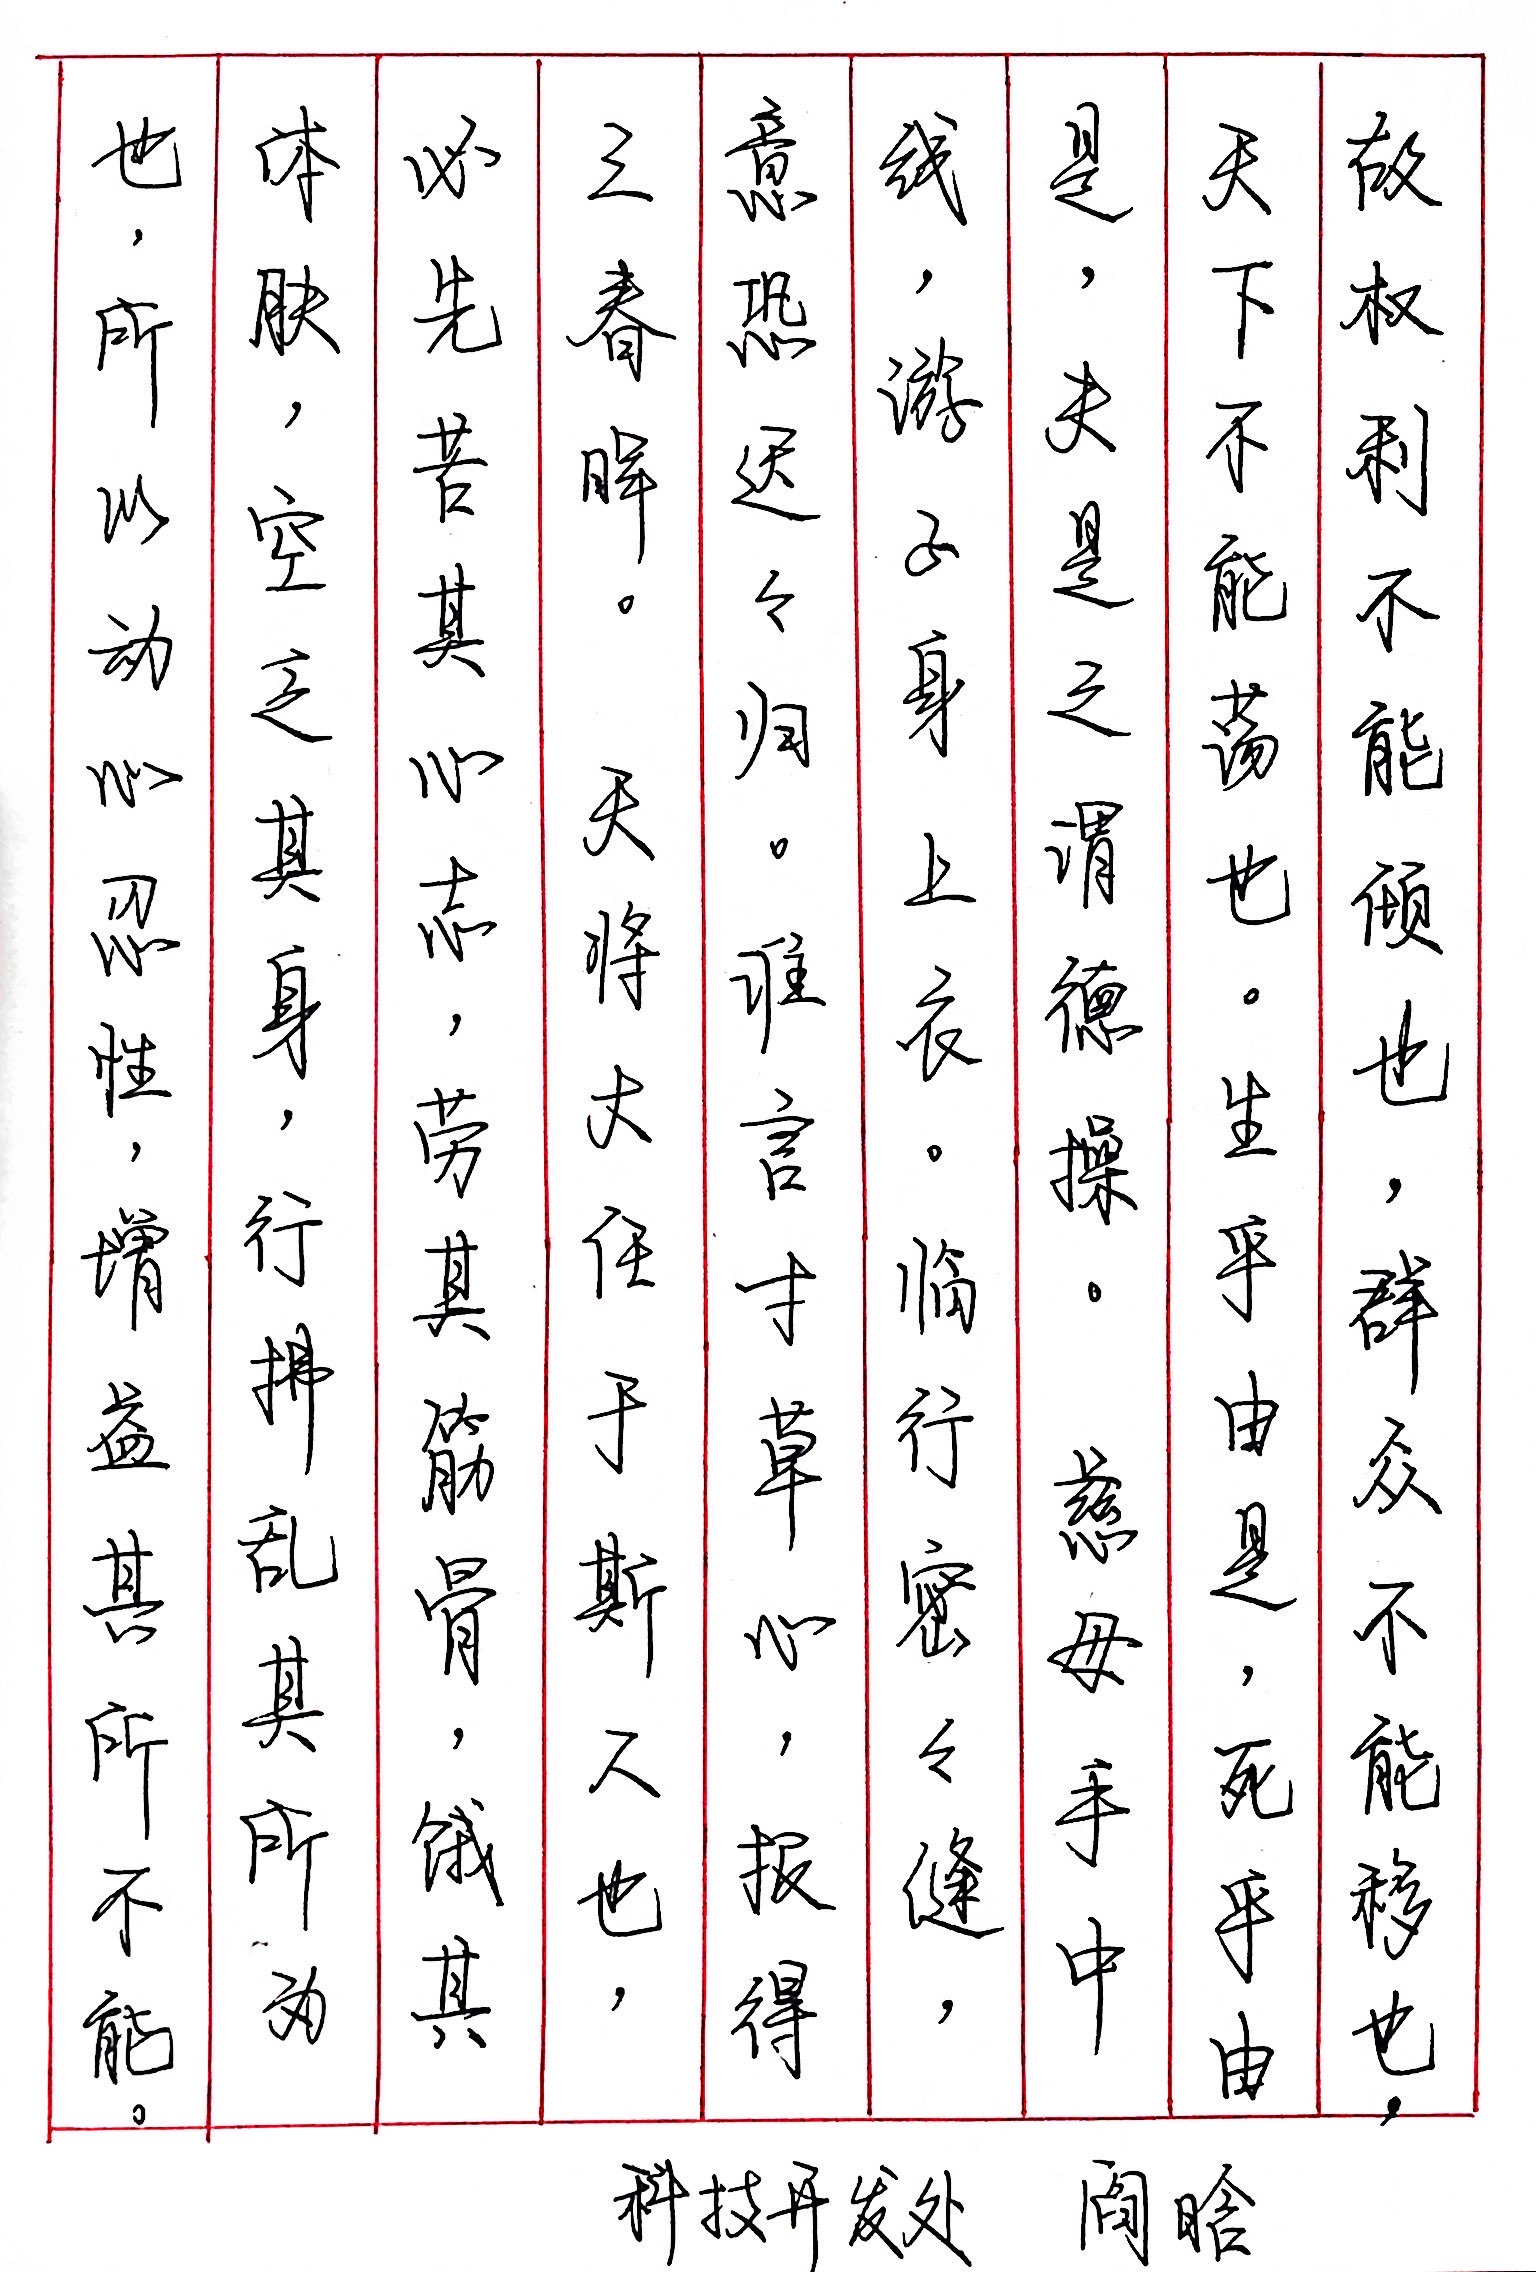 故权利不能倾也，群众不能移也，
天下不能荡也。生乎由是，死乎由
是，夫是之谓德操。 慈母手中
线，游子身上衣。临行密々缝，
意恐迟々归。谁言寸草心，报得
三春晖。 天将大任于斯人也，
必先苦其心志，劳其筋骨，饿其
体肤，空乏其身，行拂乱其所为
也，所以动心忍性，增益其所不能。
科技开发处 阎晗